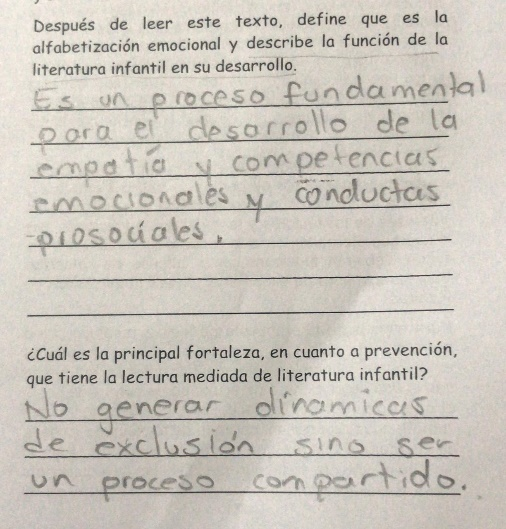 Después de leer este texto, define que es la
alfabetización emocional y describe la función de la
literatura infantil en su desarrollo.
Es un proceso fundamental
para el desarrollo de la
empatía y competencias
emocionales y conductas
prosociales.
¿Cuál es la principal fortaleza, en cuanto a prevención,
que tiene la lectura mediada de literatura infantil?
No generar dinamicas
de exclusión sino ser
un proceso compartido.